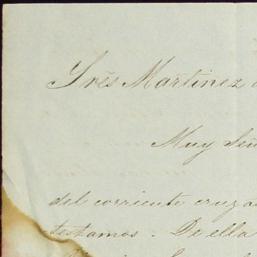 Srēs Martinez
Muy
del corriente cruz
testamos. De ella